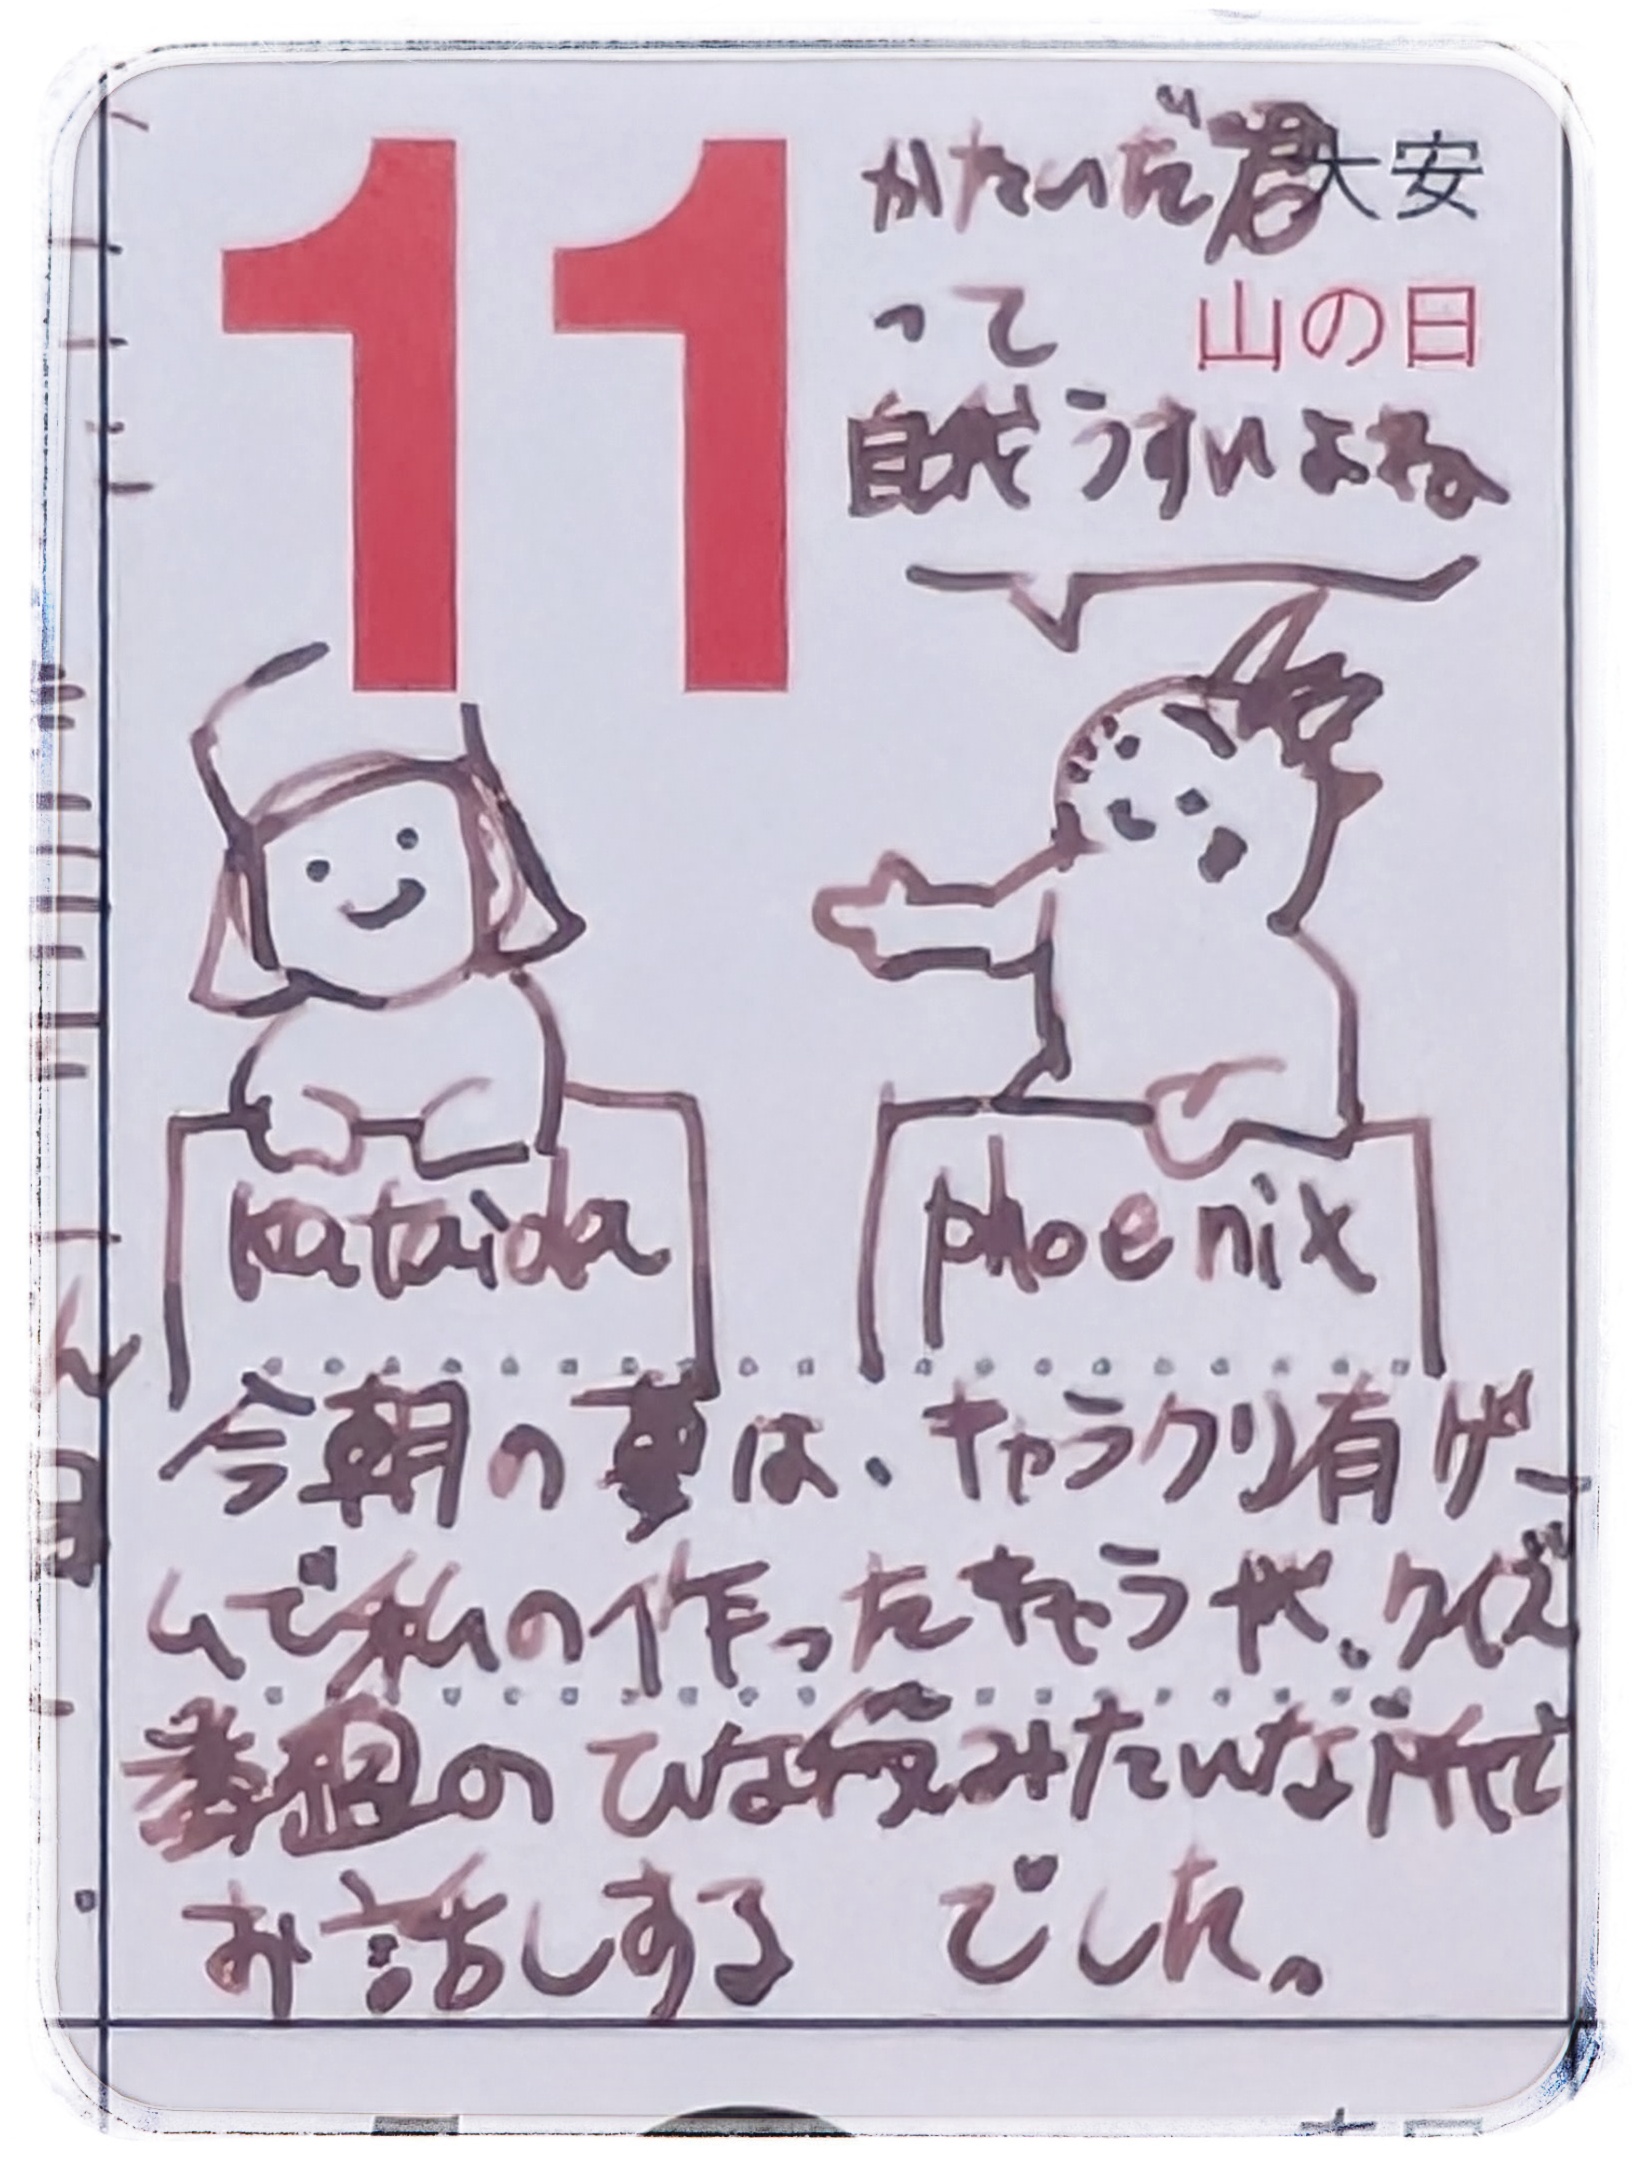 11
大安
山の日
かたいだ君
って
自我うすいよね
kataida
phoenix
今朝の夢は、キャラクリ有ゲー
ムで私の作ったキャラが、クイズ
番組のひな壇みたいな所で
お話しする でした。